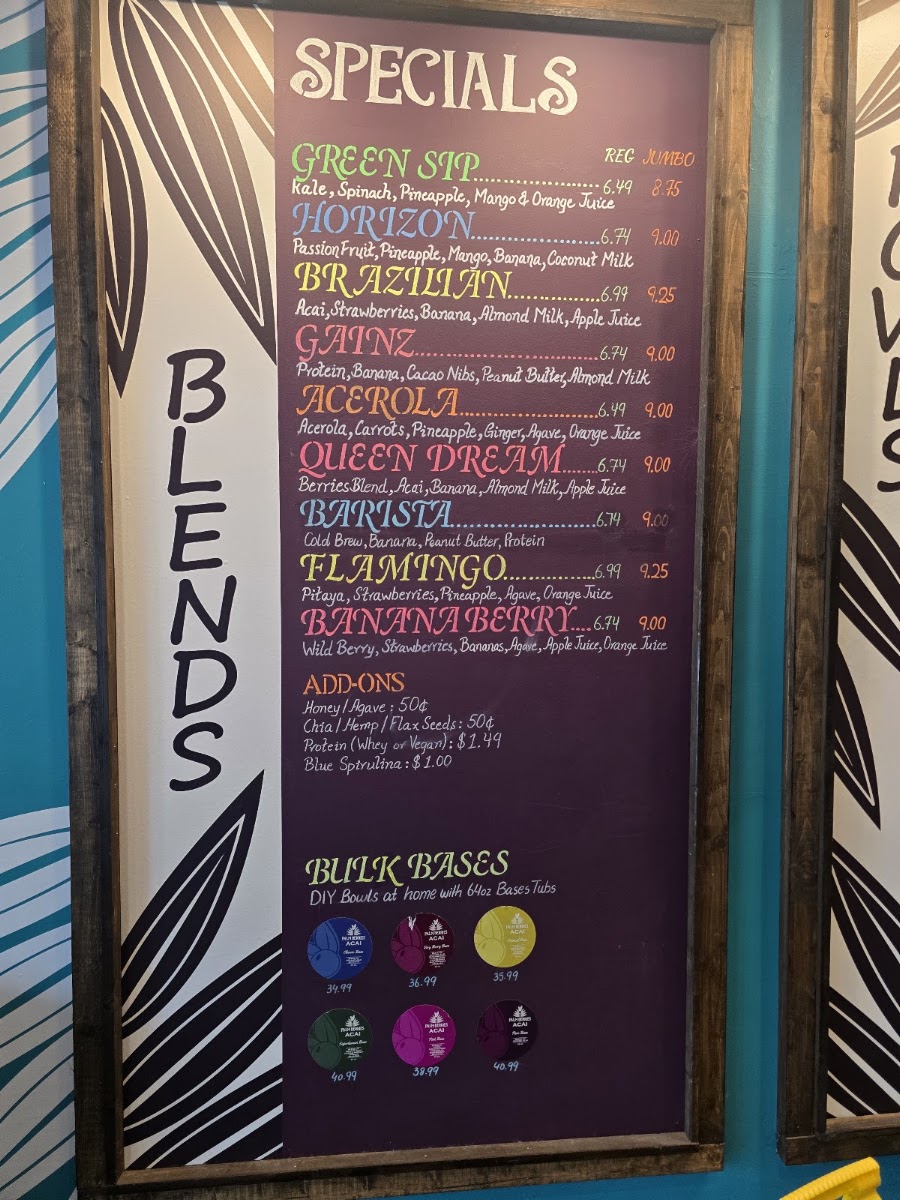 SPECIALS
REG JUMBO
GREEN SIP..................... 6.49 8.75
Kale, Spinach, Pineapple, Mango & Orange Juice
HORIZON.....................6.74 9.00
Passion Fruit, Pineapple, Mango, Banana, Coconut Milk
BRAZILIAN...............6.99 9.25
Acai, Strawberries, Banana, Almond Milk, Apple Juice
GAINZ..............................6.74 9.00
Protein, Banana, Cacao Nibs, Peanut Butter, Almond Milk
ACEROLA.......................6.49 9.00
Acerola, Carrots, Pineapple, Ginger, Agave, Orange Juice
QUEEN DREAM.......6.74 9.00
Berries Blend, Acai, Banana, Almond Milk, Apple Juice
BARISTA.........................6.74 9.00
Cold Brew, Banana, Peanut Butter, Protein
FLAMINGO...............6.99 9.25
Pitaya, Strawberries, Pineapple, Agave, Orange Juice
BANANA BERRY....6.74 9.00
Wild Berry, Strawberries, Bananas, Agave, Apple Juice, Orange Juice
ADD-ONS
Honey/Agave: 50¢
Chia/Hemp/Flax Seeds: 50¢
Protein (Whey or Vegan): $1.49
Blue Spirulina: $1.00
BULK BASES
DIY Bowls at home with 64oz Bases Tubs
PALM BERRIES
ACAI
34.99
PALM BERRIES
ACAI
36.99
35.99
PALM BERRIES
ACAI
40.99
PALM BERRIES
ACAI
38.99
PALM BERRIES
ACAI
40.99
BLENDS